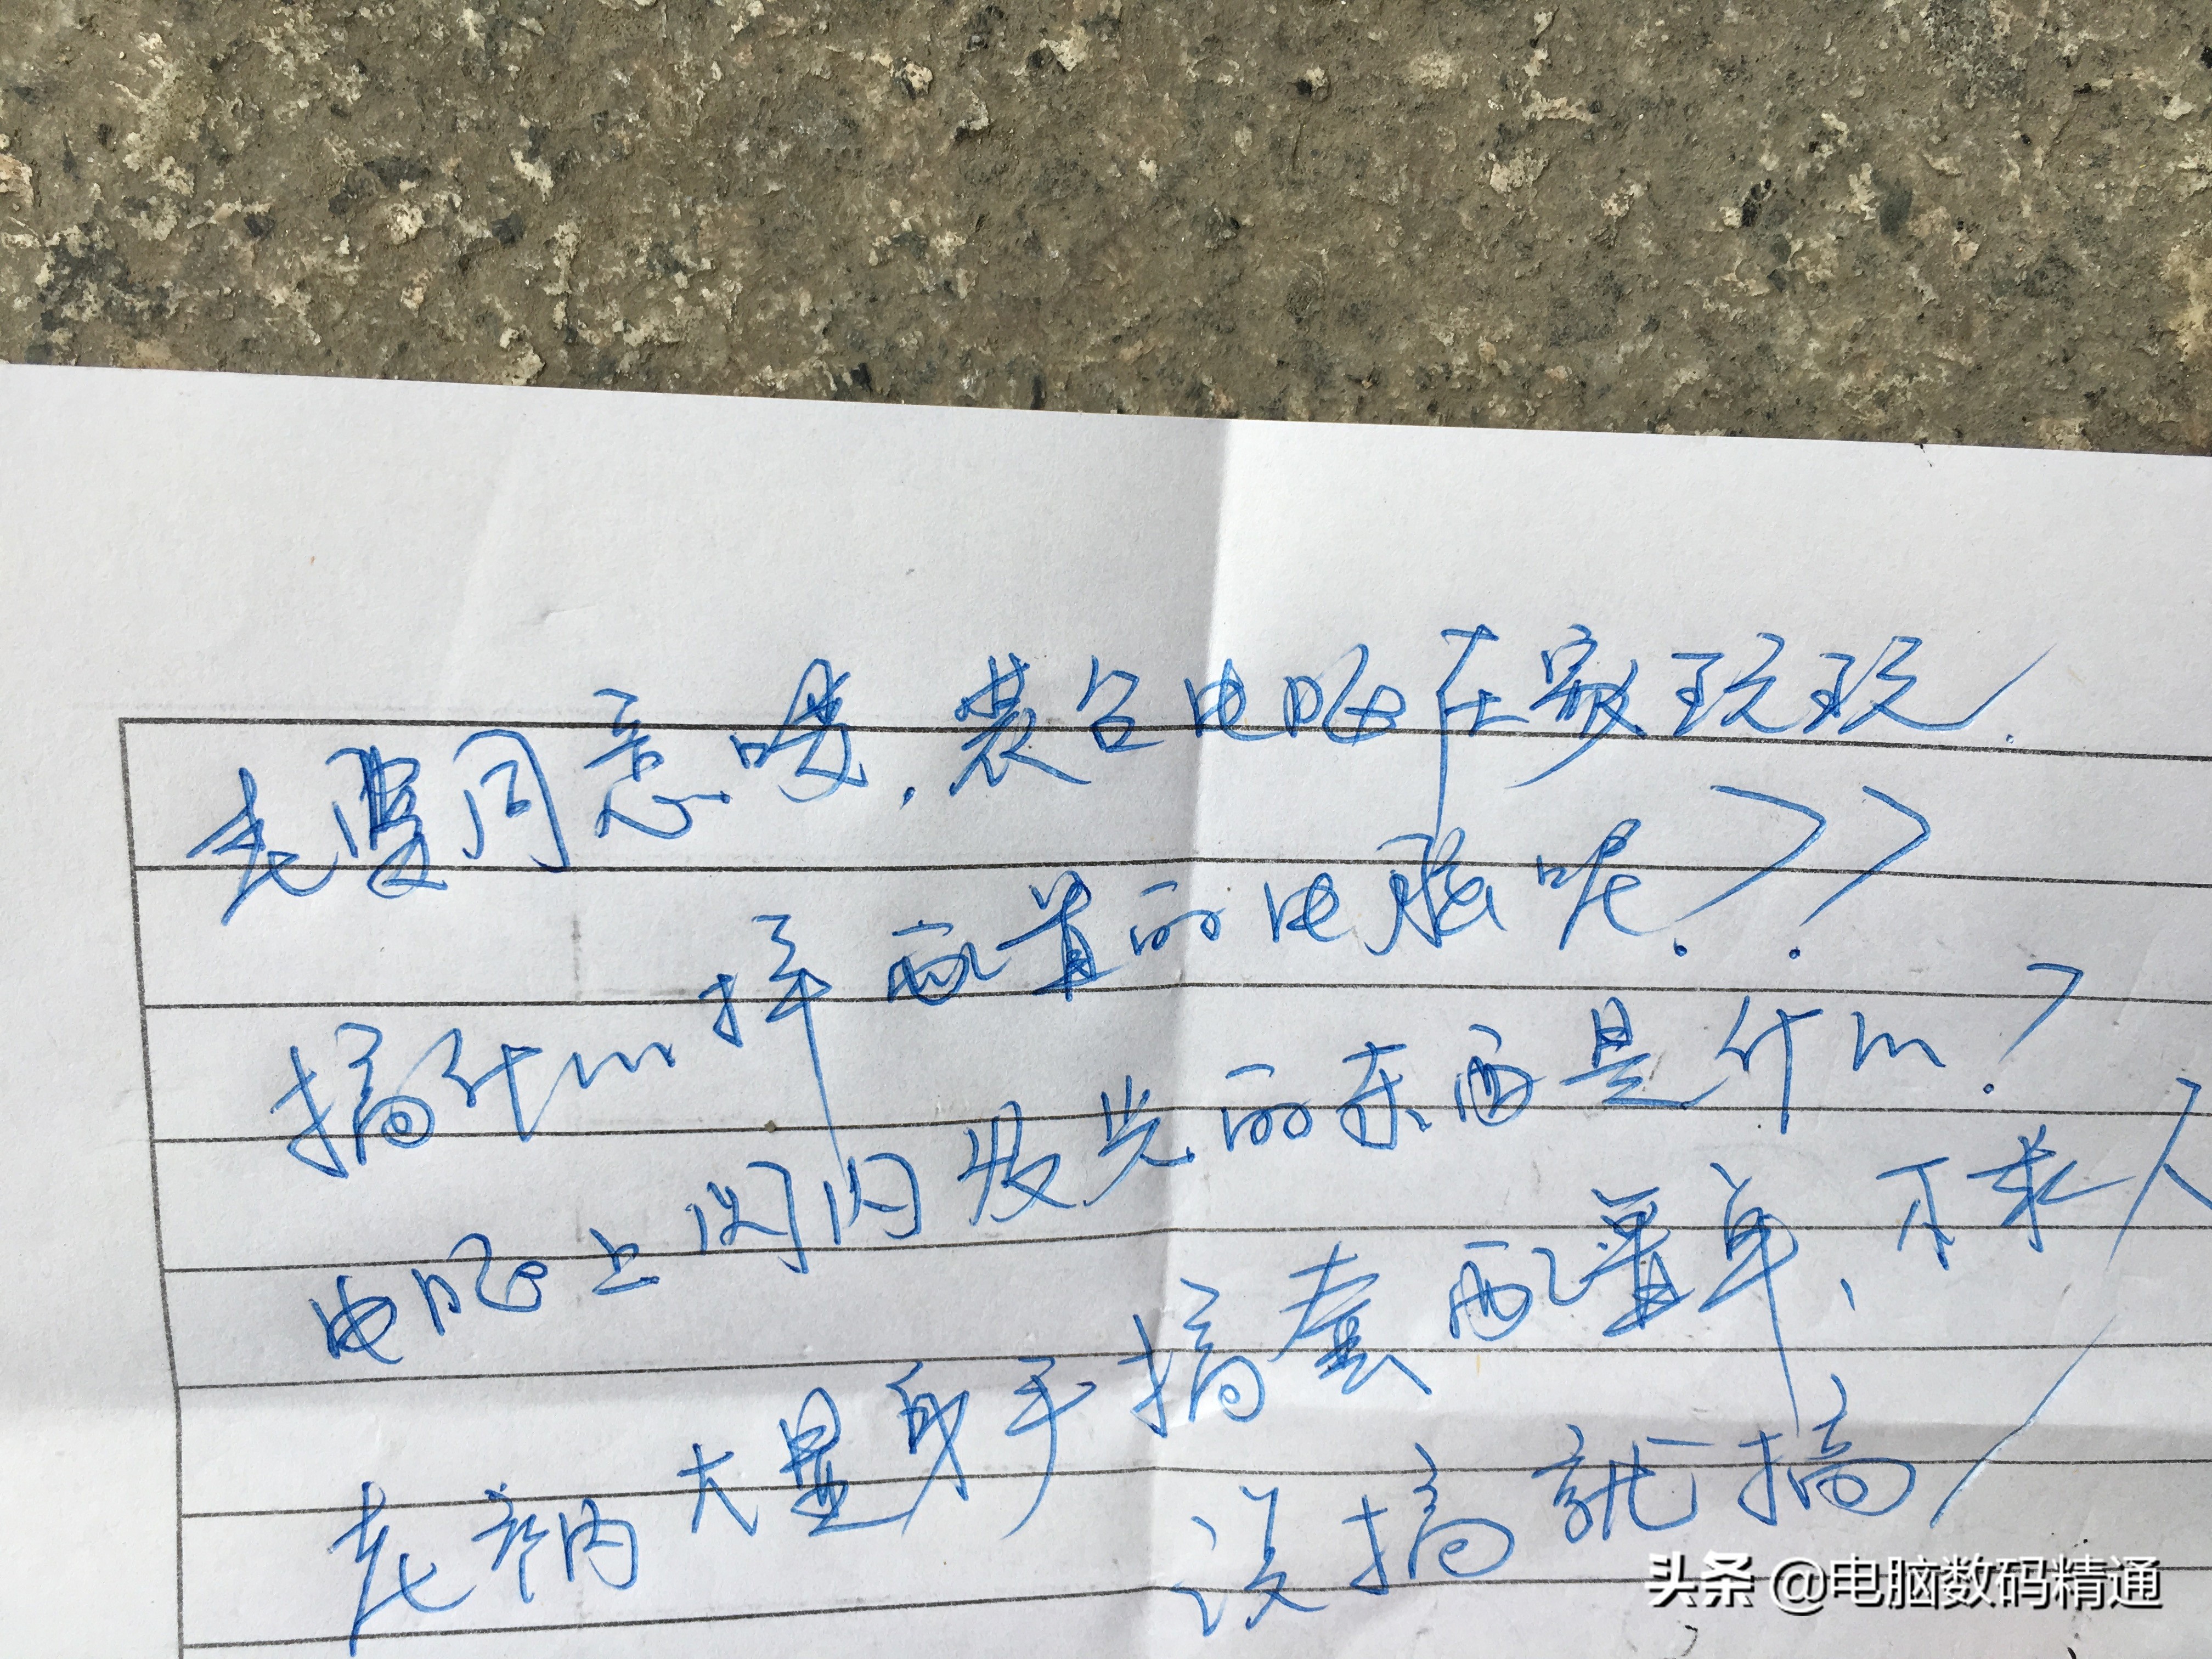 老婆同意喽.装台电脑在家玩玩.
搞什么样配置的电脑呢??
电脑上闪闪发光的东西是什么?
老衲大显身手搞套配置单、不求人
说搞就搞
头条 @电脑数码精通